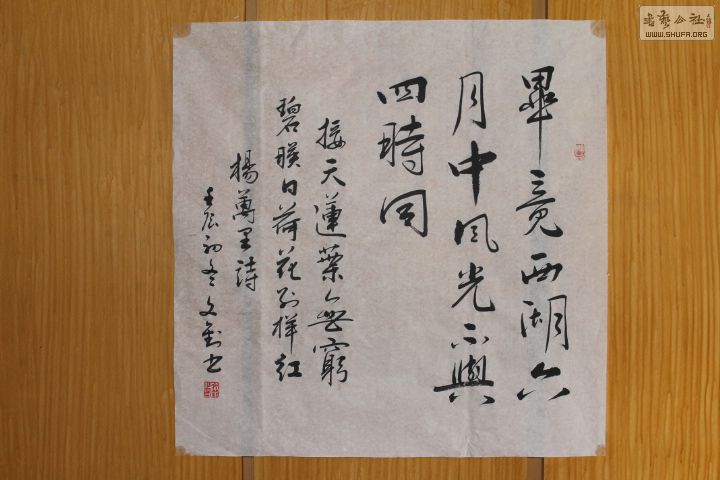 畢竟西湖六
月中風光不與
四時同
接天蓮葉無窮
碧暎日荷花別樣紅
楊萬里詩
壬辰初冬文书
书艺公社
WWW.SHUFA.ORG